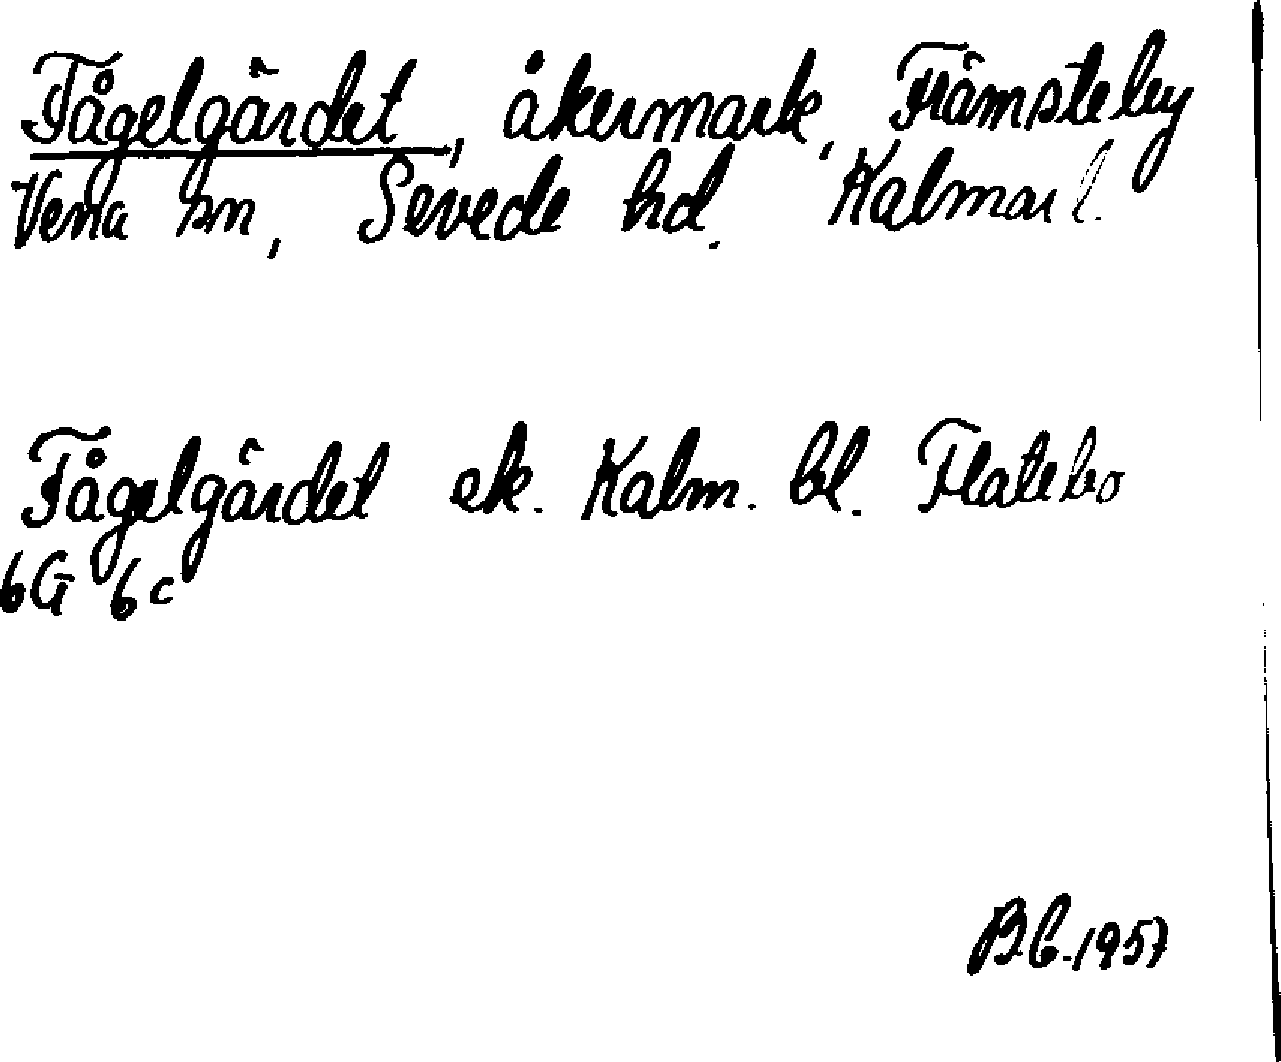 Fågelgärdet, åkermark, Främsteby
Vena sn, Sevede hd. Kalmar l.
Fågelgärdet ek. Kalm. bl. Flatebo
6G 6c
BC. 1957